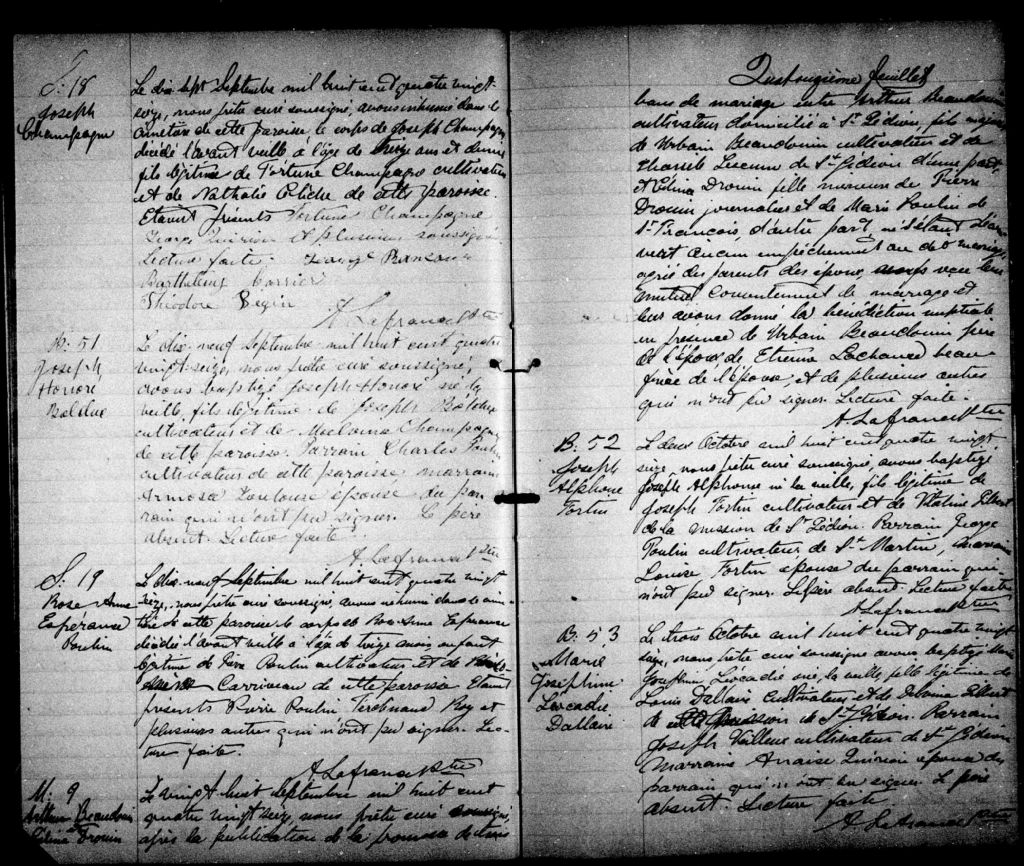 S: 18
Joseph
Champagne
Le dix sept Septembre mil huit cent quatre vingt
seize, nous prêtre curé soussigné, avons inhumé dans le
cimetière de cette paroisse le corps de Joseph Champagne
décédé l'avant veille à l'âge de ans et demi
fils légitime de Fortune Champagne cultivateur
et de Nathalie Cliche de cette paroisse.
Etaient présents Fortune Champagne
George Quirion et plusieurs soussignés
Lecture faite. George
Barthelemy Carrier
Théodore Begin
A Lafrance Ptre
B: 51
Joseph
Honoré
Bolduc
Le dix-neuf Septembre mil huit cent quatre
vingt-seize, nous prêtre curé soussigné,
avons baptisé Joseph Honoré né la
veille, fils légitime de Joseph Bolduc
cultivateur et de Champagne
de cette paroisse. Parrain Charles Poulin
cultivateur de cette paroisse marraine
Toulouse épouse du par-
rain qui n'ont pu signer. Le père
absent. Lecture faite.
A. Lafrance Ptre
S: 19
Rose Anna
Espérance
Poulin
Le dix-neuf Septembre mil huit cent quatre vingt
seize, nous prêtre curé soussigné, avons inhumé dans le cime-
tière de cette paroisse le corps de Rose-Anna Espérance
décédée l'avant veille à l'âge de treize mois enfant
légitime de Pierre Poulin cultivateur et de
Carriveau de cette paroisse Etaient
présents Pierre Poulin Ferdinand Roy et
plusieurs autres qui n'ont pu signer. Lec-
ture faite.
A Lafrance Ptre
M: 9
Arthur Beaudoin
Célina Drouin
Le vingt-huit Septembre mil huit cent
quatre vingt seize, nous prêtre curé soussigné,
après la publication de la promesse de trois
feuillet
bans de mariage entre Arthur Beaudoin
cultivateur domicilié à St Gédéon, fils majeur
de Urbain Beaudouin cultivateur et de
de St-Gédéon d'une part,
et Célina Drouin fille mineure de Pierre
Drouin journalier et de Marie Poulin de
St. François, d'autre part, ne s'étant décou-
vert aucun empêchement au dit mariage,
agréé des parents des époux, avons reçu leur
mutuel consentement de mariage et
leur avons donné la bénédiction nuptiale
en présence de Urbain Beaudouin père
de l'époux de Etienne Lachance beau
frère de l'épouse, et de plusieurs autres
qui n'ont pu signer. Lecture faite.
A Lafrance Ptre
B: 52
Joseph
Alphonse
Fortin
Le deux Octobre mil huit cent quatre vingt
seize, nous prêtre curé soussigné, avons baptisé
Joseph Alphonse né la veille, fils légitime de
Joseph Fortin cultivateur et de Vitaline
de la mission de St Gédéon. Parrain George
Poulin cultivateur de St Martin, marraine
Louise Fortin épouse du parrain qui
n'ont pu signer. Le père absent. Lecture faite
A Lafrance Ptre
B: 53
Marie
Joséphine
Léocadie
Dallaire
Le trois Octobre mil huit cent quatre vingt
seize, nous prêtre curé soussigné avons baptisé Marie
Joséphine Léocadie née, la veille, fille légitime de
Louis Dallaire cultivateur, et de
de la mission de St Gédéon. Parrain
Joseph Veilleux cultivateur de St Gédéon
Marraine Quirion épouse du
parrain qui n'ont pu signer. Le père
absent. Lecture faite
A Lafrance Ptre